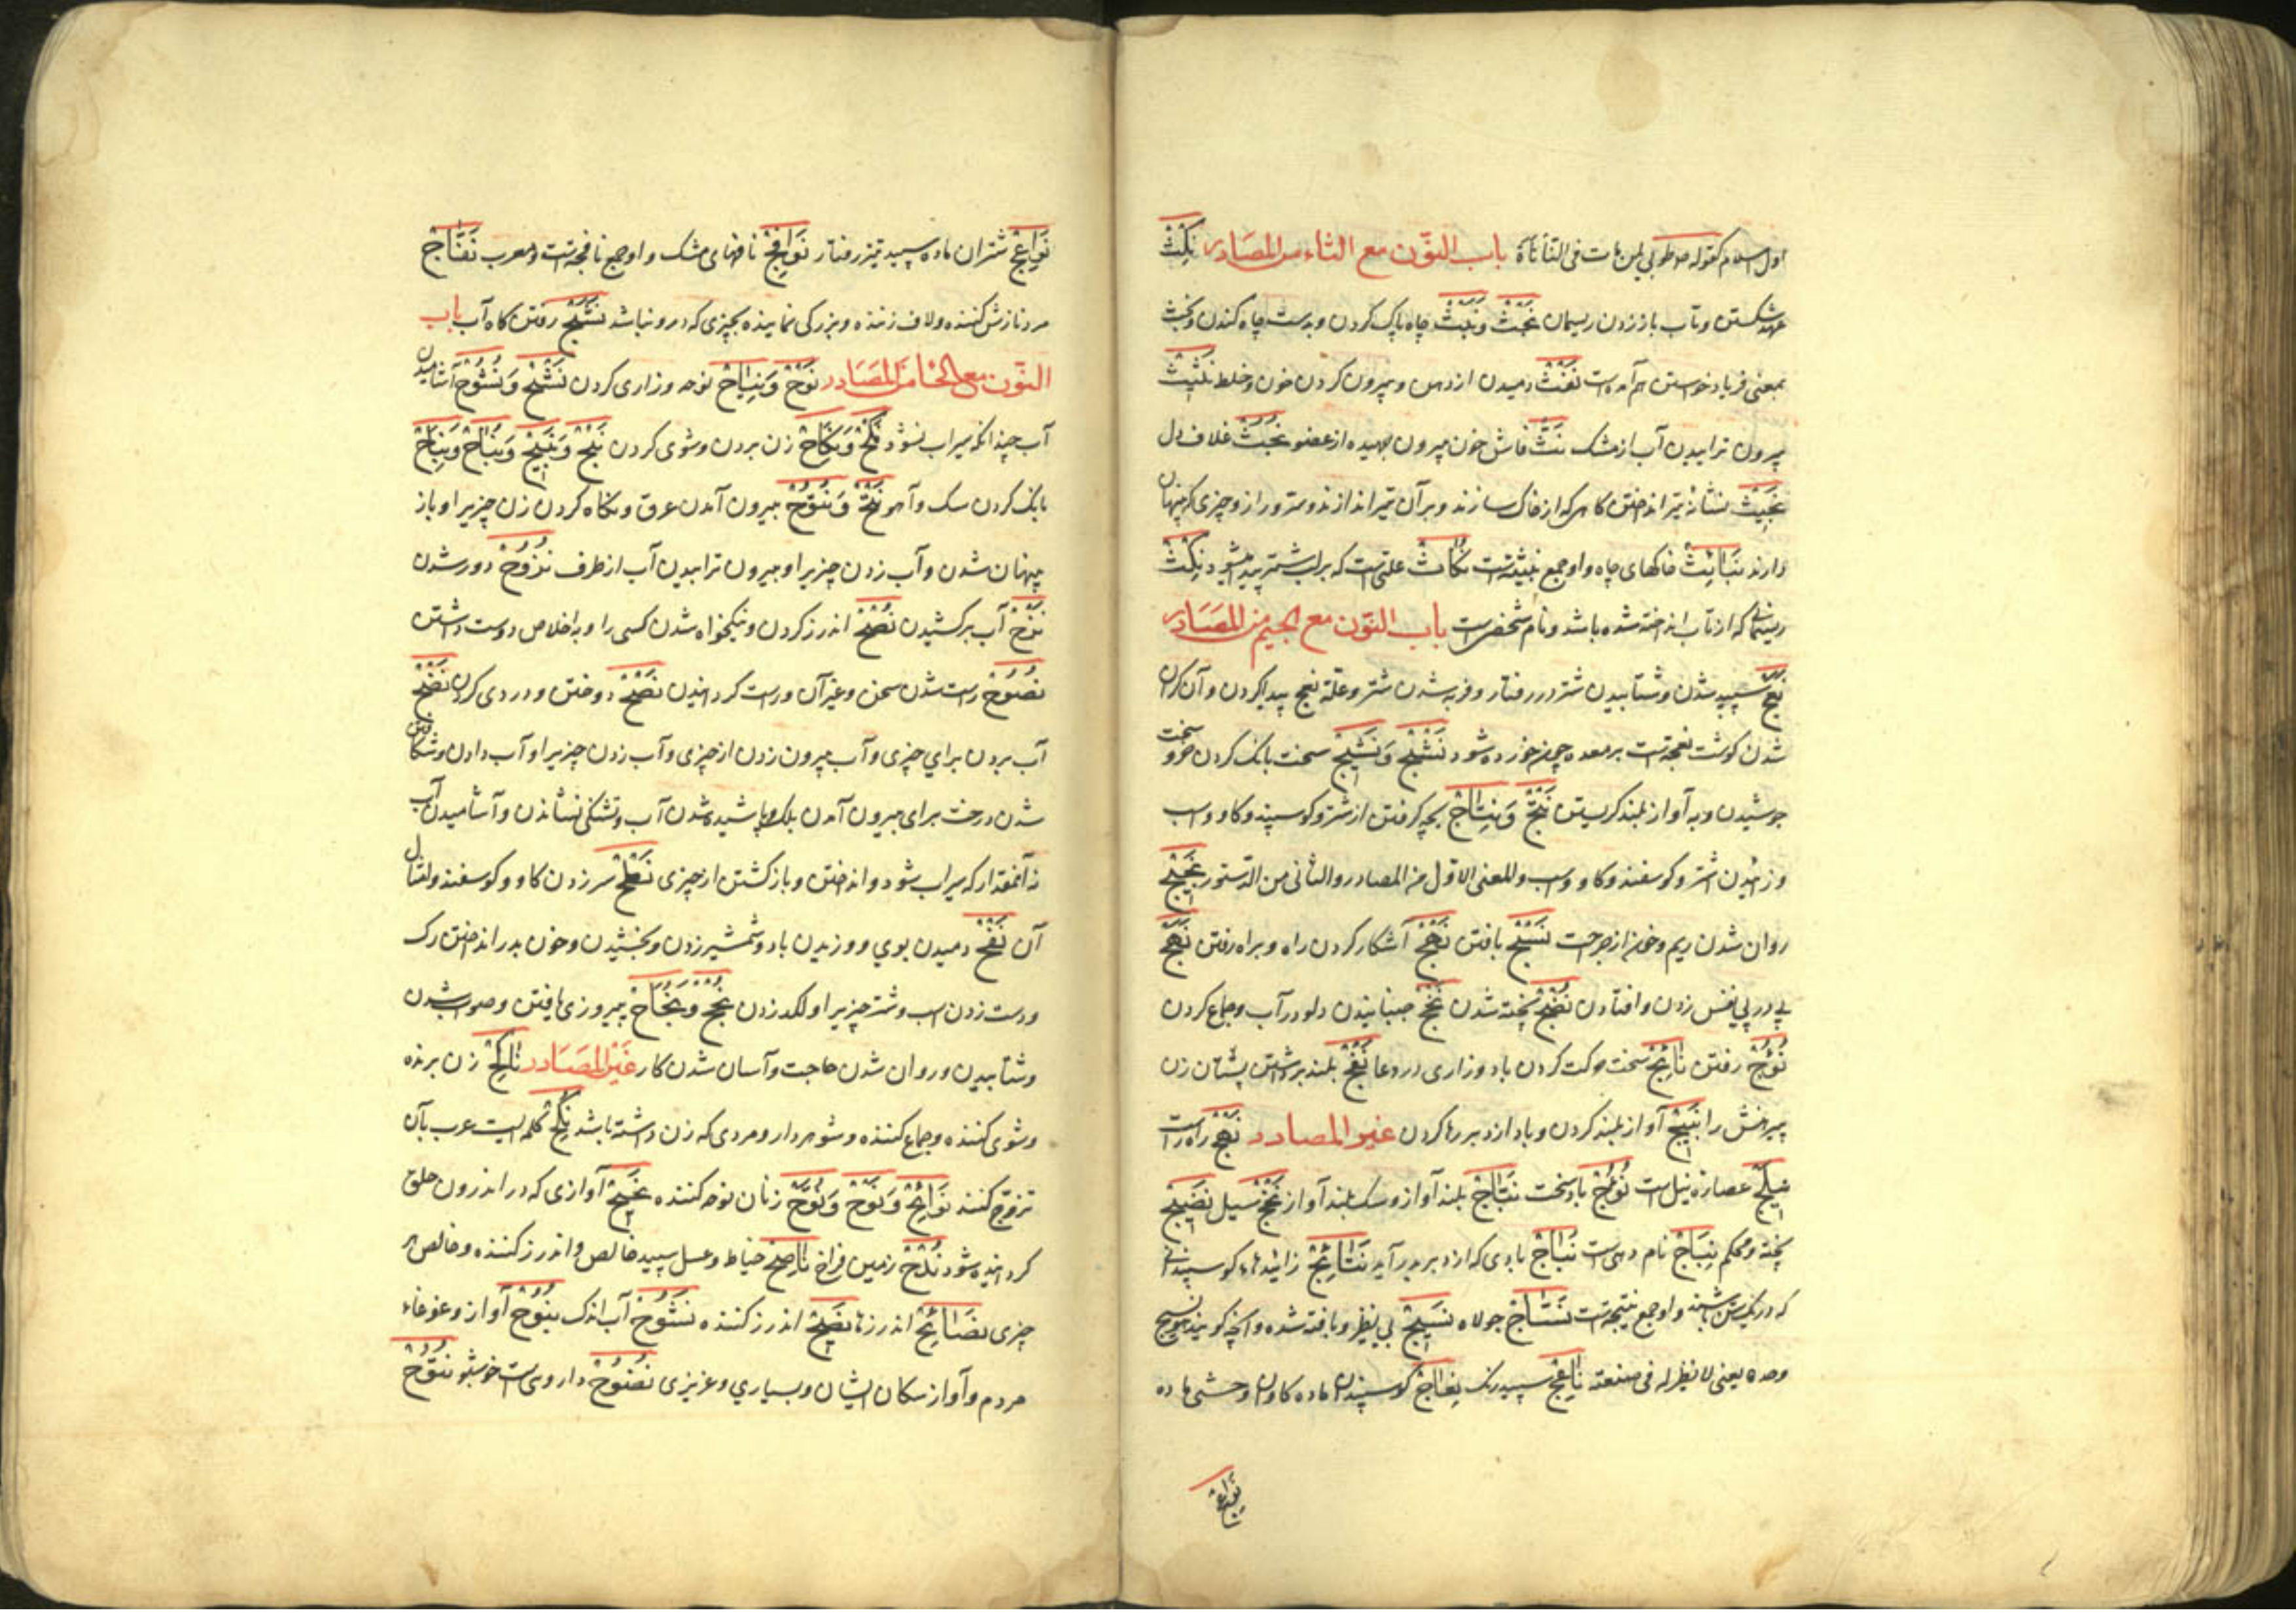 اول اسلام کقوله طوبی لمن مات فی النأنأة باب النّون مع الثاء من المصَادر نَکْثْ
عهد شکستن و تاب باز زدن ریسمان نَجْثْ و نَبْثْ چاه پاک کردن و بدست چاه کندن و نجث
بمعنی فریاد خواستن هم آمده است نَفْثْ دمیدن از دهن و بیرون کردن خون و خلط نَثیثْ
بیرون ترابیدن آب از مشک نَثّ فاش خون بیرون جهیده از عضو نُجُثْ غلاف دل
نَجِیْثْ نشانهٔ تیر انداختن کاهی که از خاک سازند و بر آن تیر اندازند و ستر و راز و چیزی که پنهان
دارند نَبَائِثْ خاکهای چاه و او جمع نبیثه است نُکَاثْ علتی است که بر لب شتر پدید میشود نِکْثْ
ریسمانی که از تاب انداخته شده باشد و نام شخصی است باب النّون مع الجیم من المصَادر
نَعَجْ سپید شدن و شتابیدن شتر در رفتار و فربه شدن شتر و علة نعج پیدا کردن و آن گران
شدن گوشت نعجه است بر معده چون خورده شود نَشْجْ وَ نَشِیْجْ سخت بانک کردن خر و سخت
جوشیدن و به آواز بلند گریستن نَتْجْ وَ نِتَاجْ بچه گرفتن از شتر و گوسپند و گاو و اسب
و زائیدن اشتر و گوسفند و گاو و اسب و للمعنی الاوّل من المصادر و الثانی من الدّستور نَجِیْجْ
روان شدن ریم و خون از جراحت نَسْجْ بافتن نَهْجْ آشکار کردن راه و براه رفتن نَهَجْ
پی در پی نفس زدن و افتادن نُضْجْ پخته شدن نَخْجْ جنبانیدن دلو در آب و جماع کردن
نُؤُجْ رفتن نَائِجْ سخت حرکت کردن باد و زاری در دعا نَفْجْ بلند برداشتن پستان زن
پیرهنش را نَبِیْجْ آواز بلند کردن و باد از دبر رها کردن غیر المصادر نَهْجْ راه راست
نِیْلَجْ عصارهٔ نیل است نُؤُجْ باد سخت نَبَّاجْ بلند آواز و سک بلند آواز نَخْجْ سیل نَضِیْجْ
پخته و محکم نِبَاجْ نام دهی است نُبَاجْ بادی که از دبر بدر آید نَتَائِجْ زائیدهاء گوسپندانی
که در یک سن باشند و او جمع نتیجه است نَسَّاجْ جولاه نَسِیْجْ بی نظیر و بافته شده و آنچه گویند هو نسیج
وحده یعنی لا نظیر له فی صنعته نَاعِجْ سپید رنک نِعَاجْ گوسپندان ماده گاوان وحشی ماده
نواعج
نَوَاعِجْ شتران ماده سپید تیز رفتار نَوَافِجْ نافهای مشک و او جمع نافجه است و معرب نَفَّاجْ
مرد نازش کننده و لاف زننده و بزرگی نماینده بچیزی که در و نباشد نَشَجْ رفتن گاه آب باب
النّون مع الحَا من المصَادر نَوْحْ وَ نِیَاحْ نوحه و زاری کردن نَشْحْ وَ نُشُوْحْ آشامیدن
آب چندانکه سیراب نشود نَکْحْ وَ نِکَاحْ زن بردن و شوی کردن نَبْحْ وَ نَبِیْحْ وَ نُبَاحْ وَ نِبَاحْ
بانک کردن سک و آهو نَتْحْ وَ نُتُوْحْ بیرون آمدن عرق و نگاه کردن زن چیزیرا و باز
پنهان شدن و آب زدن چیزیرا و بیرون ترابیدن آب از طرف نُزُوْحْ دور شدن
نَزْحْ آب برکشیدن نُصْحْ اندرز کردن و نیکخواه شدن کسی را و به اخلاص دوست داشتن
نُصُوْحْ راست شدن سخن و غیر آن و راست گردانیدن نَصْحْ دوختن و درزی کردن نَضْحْ
آب بردن برای چیزی و آب بیرون زدن از چیزی و آب زدن چیزیرا و آب دادن و شکافتن
شدن درخت برای بیرون آمدن بلک و پاشیده شدن آب و تشنگی نشاندن و آشامیدن آب
نه آنمقدار که سیراب شود و انداختن و بازکشتن از چیزی نَطْحْ سر زدن گاو و گوسفند و امثال
آن نَفْحْ دمیدن بوی و وزیدن باد و شمشیر زدن و بخشیدن و خون بدر انداختن رک
و دست زدن اسب و شتر چیزیرا و لکد زدن نُجْحْ و نَجَاحْ پیروزی یافتن و صواب شدن
و شتابیدن و روان شدن حاجت و آسان شدن کار غَیْر المصَادر نَاکِحْ زن برنده
و شوی کننده و جماع کننده و شوهردار و مردی که زن داشته باشد نِکْحْ کلمه ایست عرب بآن
تزوّج کنند نَوَائِحْ وَ نَوْحْ وَ نُوَّحْ زنان نوحه کننده نَحِیْحْ آوازی که در اندرون حلق
گردانیده شود نُدْحْ زمین فراخ نَاصِحْ خیاط و عسل سپید خالص و اندرز کننده و خالص هر
چیزی نَصَائِحْ اندرزها نَصِیْحْ اندرز کننده نَشُوْحْ آب اندک نُبُوْحْ آواز و غوغاء
مردم و آواز سکان ایشان و بسیاری و عزیزی نَضُوْحْ داروی است خوشبو نُتُوْحْ